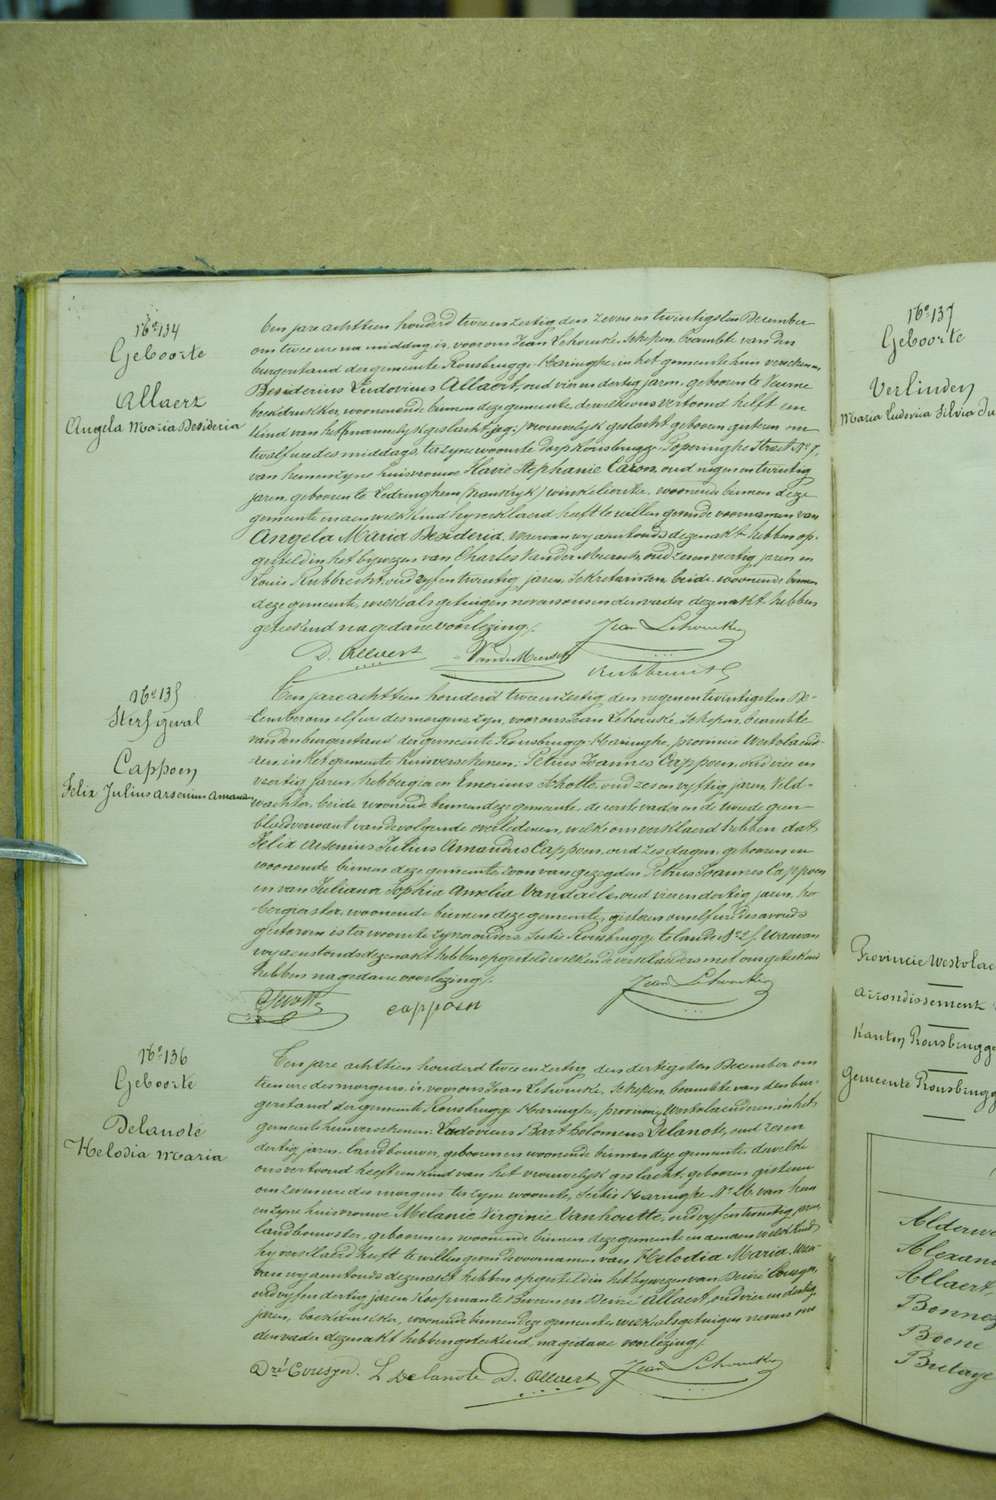 No. 134
Geboorte
Allaert
Angela Maria Desideria
Ten jare achttien honderd twee en zestig den zeven en twintigsten December
om twee ure na middag is voor ons Jean Lehoucke, Schepen, beambte van den
burgerstand der gemeente Rousbrugge-Haringhe, in het gemeente huis verschenen,
Desiderius Ludovicus Allaert, oud vier en dertig jaren, geboren te Veurne
boekdrukker, woonende binnen deze gemeente, dewelke ons vertoond heeft een
kind van het vrouwelijk geslacht geboren gisteren om
twelf ure des middags, ter zyne woonste dorp Rousbrugge Poperinghe Straet No. 7,
van hem en zyne huisvrouwe Flavie Stephanie Caron, oud negen en twintig
jaren, geboren te Ledringhem (Frankryk) winkelierster, woonende binnen deze
gemeente en aen welk kind hy verklaerd heeft te willen geven de voornamen van
Angela Maria Desideria, waervan wy aenstonds dezen akt hebben op-
gesteld in het bywezen van Charles Vander Meersch, oud zes en veertig jaren en
Louis Rubbrecht, oud vyf en twintig jaren, Sekretarissen, beide woonende binnen
deze gemeente, welke als getuigen nevens ons en den vader dezen akt hebben
geteekend na gedane voorlezing/.
Jean Lehoucke
D. Allaert VanderMeersch
Rubbrecht L
No. 135
Sterfgeval
Cappoen
Felix Julius arsenius Amand
Ten jare achttien honderd twee en zestig den negen en twintigsten De-
cember om elf ure des morgens zyn, voor ons Jean Lehoucke, Schepen, beambte
van den burgerstand der gemeente Rousbrugge-Haringhe, provincie Westvlaende-
ren, in het gemeente huis verschenen, Petrus Joannes Cappoen, oud vier en
veertig jaren, herbergier en Emerinus Schotte, oud zes en vyftig jaren, Veld-
wachter, beide woonende binnen deze gemeente, de eerste vader en de tweede geen
bloedverwant van de volgende overledenen, welke ons verklaerd hebben dat
Felix Arsenius Julius Amandus Cappoen, oud zes dagen, geboren en
woonende binnen deze gemeente, zoon van gezegden Petrus Joannes Cappoen
en van Juliana Sophia Amelia Vandaele, oud vier en dertig jaren, her-
bergierster, woonende binnen deze gemeente, gisteren om elf ure des avonds
gestorven is ter woonste zyner ouders, Sectie Rousbrugge te lande No. 2/. Waervan
wy aenstonds dezen akt hebben opgesteld welken de verklaerders met ons geteekend
hebben na gedane voorlezing/.
Jean Lehoucke
cappoen
No. 136
Geboorte
Delanote
Helodia Maria
Ten jare achttien honderd twee en zestig den dertigsten December om
tien ure des morgens is, voor ons Jean Lehoucke, Schepen, beambte van den bur-
gerstand der gemeente Rousbrugge-Haringhe, provincie Westvlaenderen, in het
gemeente huis verschenen: Ludovicus Bartholomeus Delanote, oud zes en
dertig jaren, landbouwer, geboren en woonende binnen deze gemeente, dewelke
ons vertoond heeft een kind van het vrouwelijk geslacht, geboren gisteren
om zeven ure des morgens ter zyne woonste, Sectie Haringhe No. 26, van hem
en zyne huisvrouwe Melanie Virginie Vanhoutte, oud vyf en twintig jaren,
landbouwster, geboren en woonende binnen deze gemeente en aen welk kind
hy verklaerd heeft te willen geven de voornamen van Helodia Maria, Waer-
van wy aenstonds dezen akt hebben opgesteld in het bywezen van Desiré Cousyn,
oud vyf en dertig jaren Koopman te Beveren en Desiré Allaert, oud vier en dertig
jaren, boekdrukker, woonende binnen deze gemeente, welke als getuigen nevens ons
den vader dezen akt hebben geteekend, na gedane voorlezing/.
Dré Cousyn. L Delanote D. Allaert Jean Lehoucke
No. 137
Geboorte
Verlinden
Maria Ludovica Silvia
Provincie Westvlae
Arrondissement
Kanton Rousbrugge
Gemeente Rousbrugg
Alderwe
Alexan
Allaert,
Bonnez
Boene
Butaye